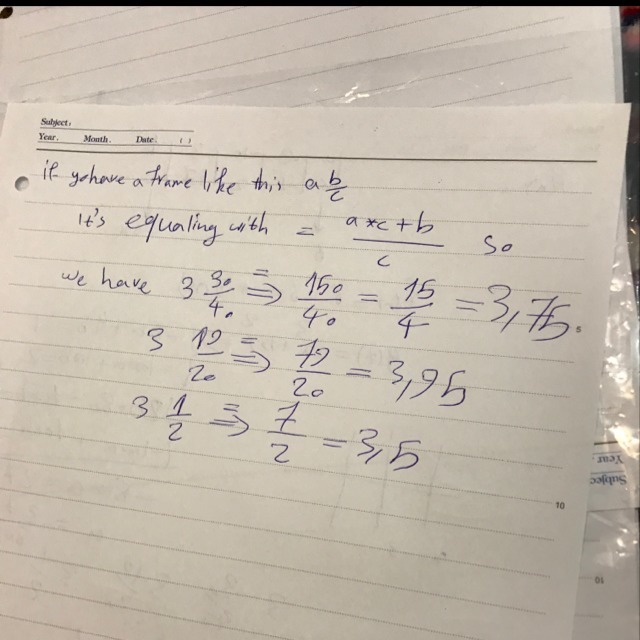 Subject:
Year. Month. Date. ( )
if you have a frame like this a b/c
it's equaling with = a*c+b/c so
we have 3 30/40 => 150/40 = 15/4 = 3,75
5
3 19/20 => 79/20 = 3,95
3 1/2 => 7/2 = 3,5
10
Year
Subject
10